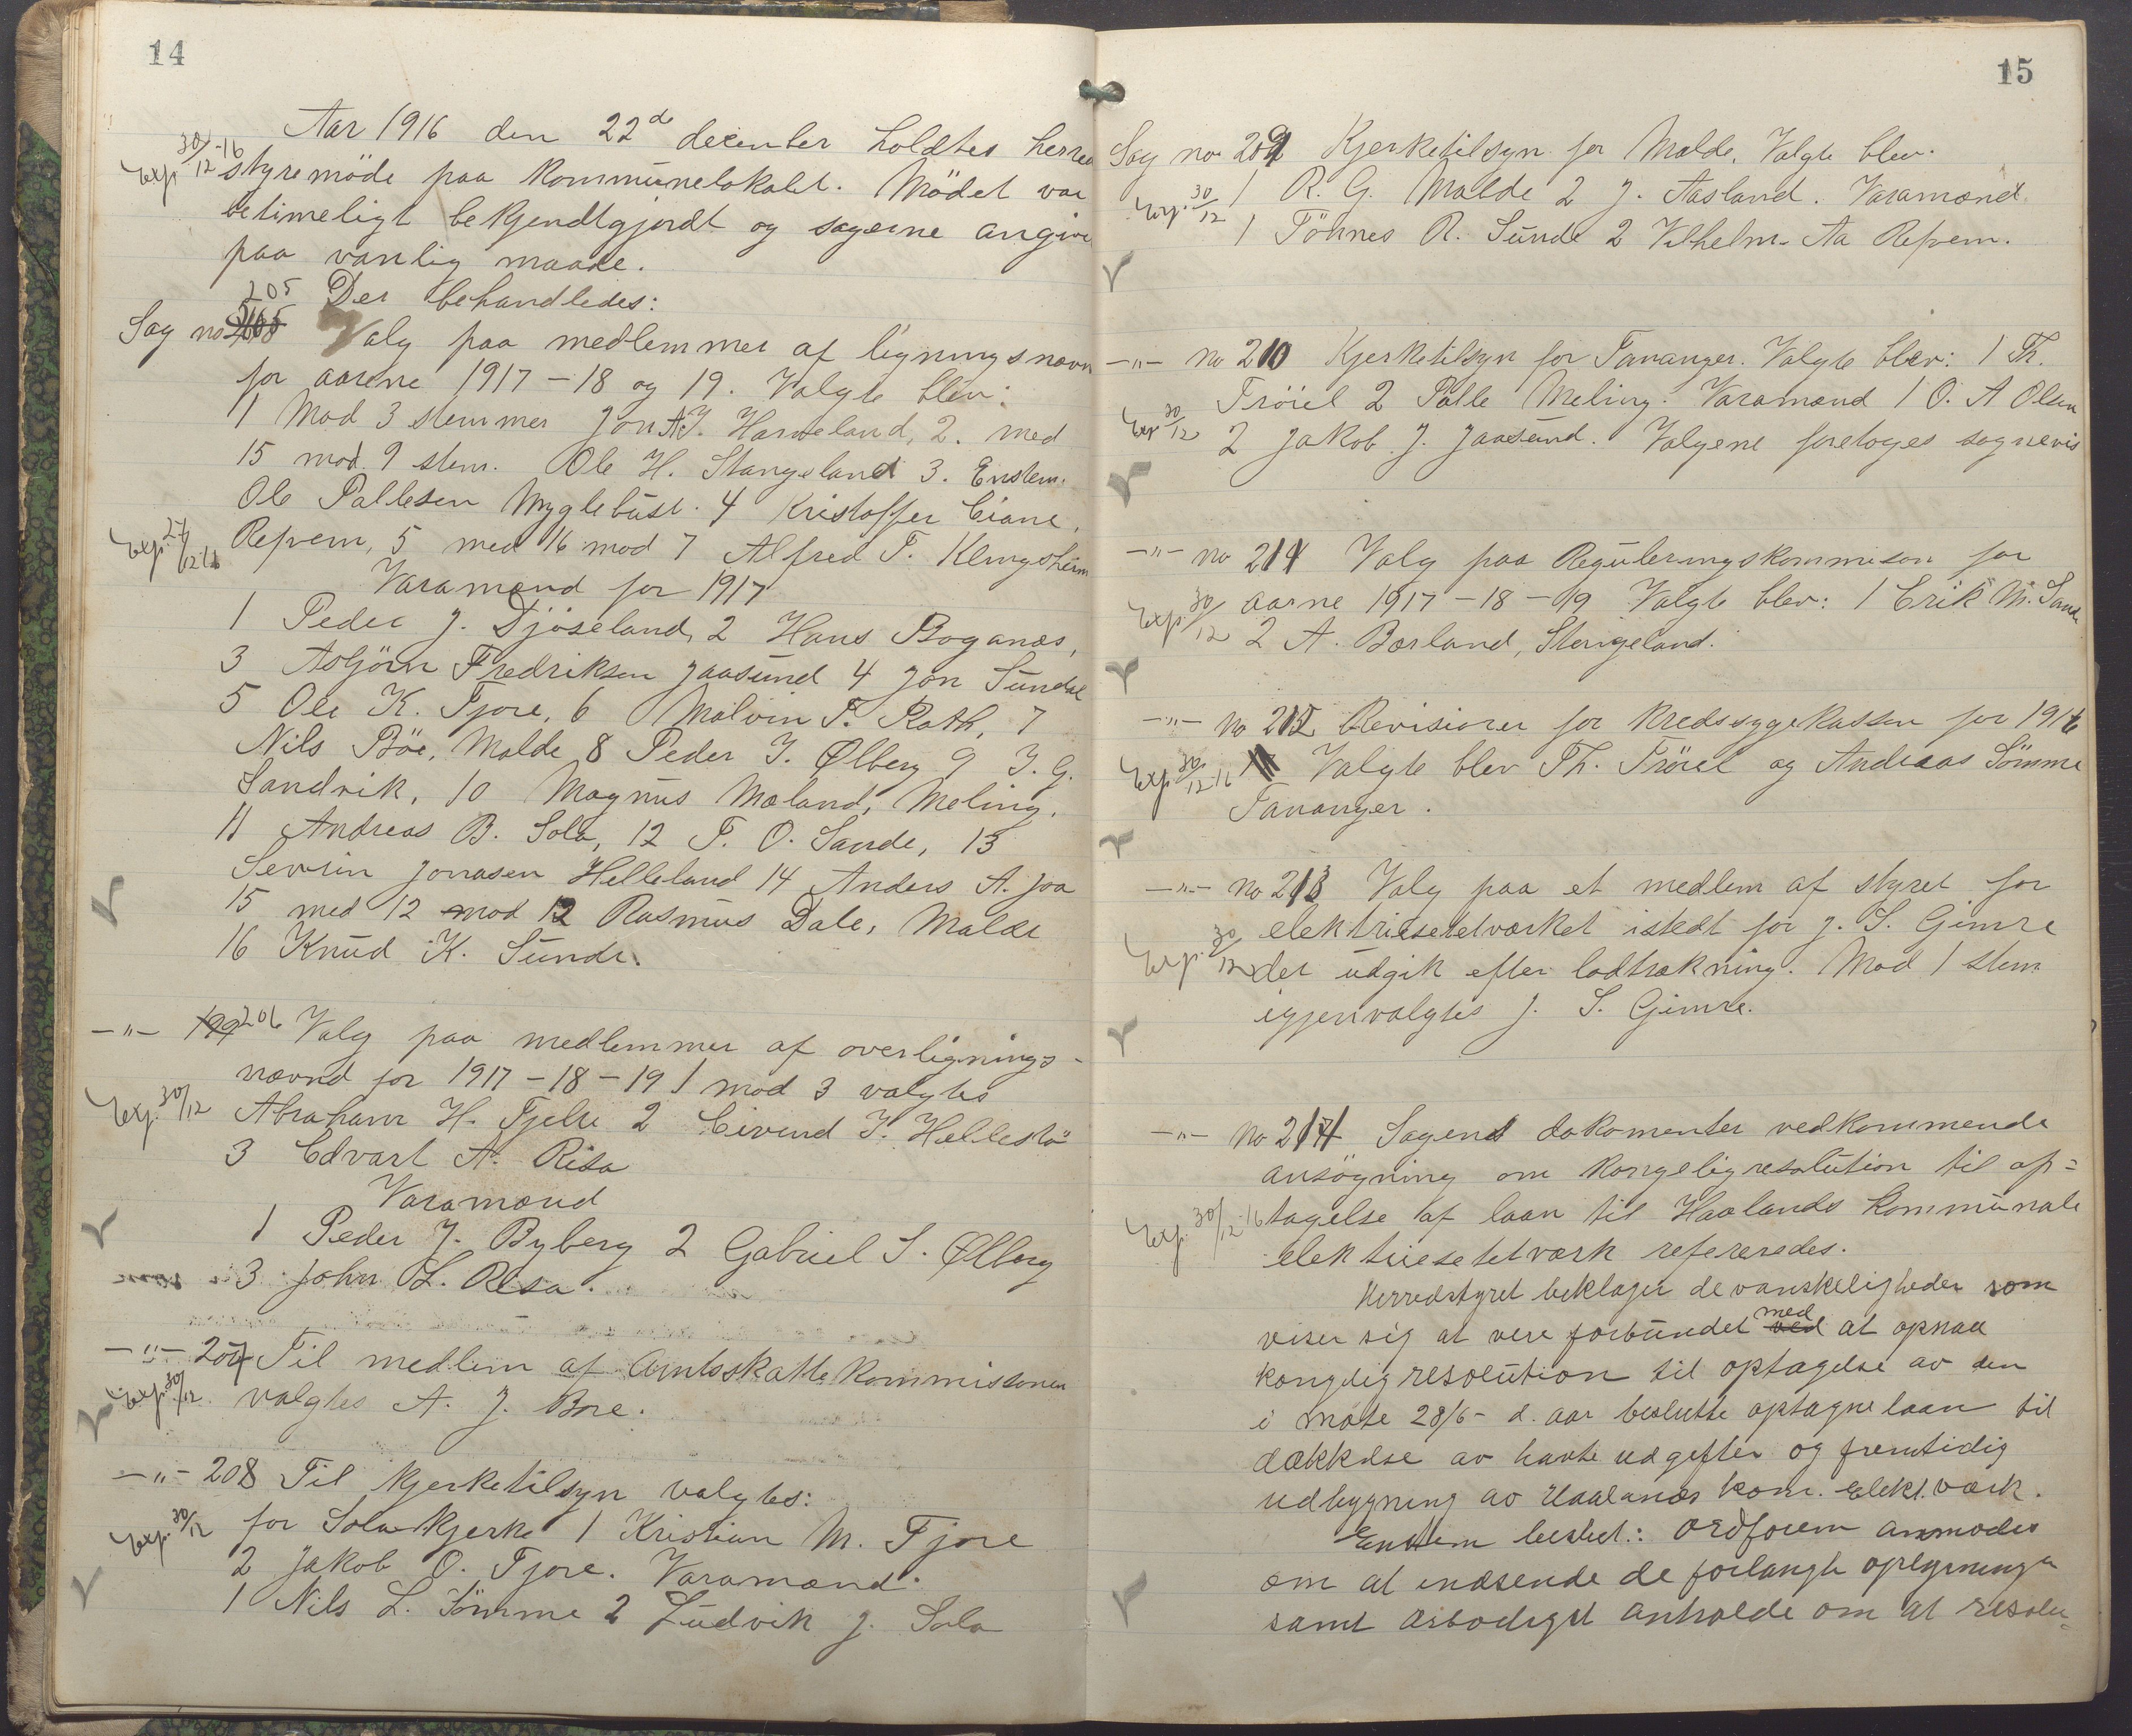 14
Aar 1916 den 22de december holdtes herreds
Exp. 30/12-16 styremöde paa Kommunelokalet. Mödet var
betimeligt bekjendtgjordt og sagerne angivet
paa vanlig maade.
205 Der behandledes:
Sag no Valg paa medlemmer af ligningsnævn
for aarene 1917-18 og 19. Valgte blev:
1 Mod 3 stemmer Jon A.J. Harveland, 2. med
15 mod 9 stem. Ole H. Stangeland 3. Enstem.
Ole Pallesen Myglebüst. 4 Kristoffer Eiane,
Exp. 27/12 16 Refvem, 5 med 16 mod 7 Alfred T. Klingsheim
Varamænd for 1917
1 Peder J. Djöseland, 2 Hans Boganæs,
3 Asbjörn Fredriksen Jaasünd 4 Jon Sündal
5 Ole K. Tjore, 6 Malvin T. Roth, 7
Nils Böe, Malde 8 Peder I. Ølberg 9 I. G.
Sandvik, 10 Magnüs Mæland, Meling,
11 Andreas B. Sola, 12 T. O. Sande, 13
Sevrin Jonasen Helleland 14 Anders A. Joa
15 med 12 mod 12 Rasmüs Dale, Malde
16 Knüd K. Sünde.
-"- 199 206 Valg paa medlemmer af overlignings-
nævnd for 1917-18-19 1 mod 3 valgtes
Exp. 30/12 Abraham H. Tjelte 2 Eivend I. Hellestö
3 Edvart A. Risa
Varamænd
1 Peder J. Byberg 2 Gabriel S. Ølberg
3 John L. Risa.
-"- 207 Til medlem af Amtsskattekommissonen
Exp. 30/12 valgtes A. J. Bore.
-"- 208 Til Kjerketilsyn valgtes:
Exp. 30/12 for Sola Kjerke 1 Kristian M. Tjore
2 Jakob O. Tjore. Varamænd.
1 Nils L. Sömme 2 Lüdvik J. Sola
15
Sag no 209 Kjerketilsyn for Malde. Valgte blev.
Exp. 30/12 1 R. G. Malde 2 J. Aasland. Varamænd
1 Tönnes R. Sünde 2 Vilhelm Aa Refvem.
-"- no 210 Kjerketilsyn for Tananger. Valgte blev: 1 Th.
Tröiel 2 Palle Meling. Varamænd 1 O. A Olsen
Exp. 30/12 2 Jakob J. Jaasünd. Valgene foretoges sognevis
-"- no 211 Valg paa Regüleringskommison for
Exp. 30/12 aarne 1917-18-19 Valgte blev: 1 Erik M. Sande
2 A. Børland, Stangeland.
-"- no 212 Revisiorer for Kredssygekassen for 1916
Exp. 30/12-16 Valgte blev Th. Tröiel og Andreas Sömme
Tananger.
-"- no 213 Valg paa et medlem af styret for
elektriesetetværket istedt for J. S. Gimre
Exp. 30/12 det üdgik efter lodtrækning. Mod 1 stem
igjenvalgtes J. S. Gimre.
-"- no 214 Sagens dokomenter vedkommende
ansögning om Kongelig resolütion til op=
Exp. 30/12-16 tagelse af laan til Haalands Kommünale
elektriesetetværk refereredes.
Herredstyret beklager de vanskeligheder som
viser sig at vere forbündet ved med at opnaa
kongelig resolütion til optagelse av den
i møte 28/6- d. aar beslutte optagne laan til
dækkelse av havte udgifter og fremtidig
udbygning av Haalands kom. Elekt.værk.
Enstem beslut: Ordførern anmodes
om at indsende de forlangte oplysninger
samt ærbødigst anholde om at resolu-